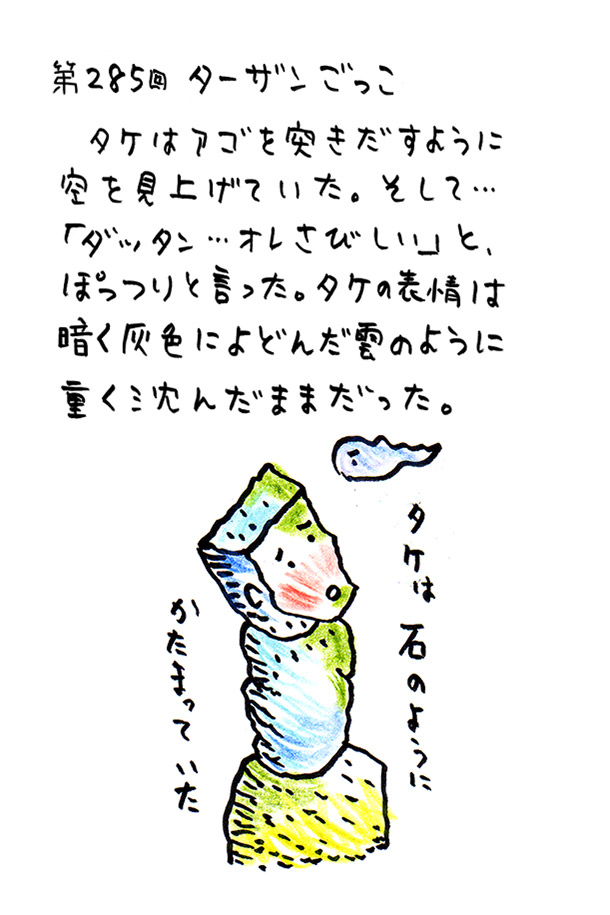 第285回 ターザンごっこ
タケはアゴを突きだすように
空を見上げていた。そして…
「ダッタン…オレさびしい」と、
ぽっつりと言った。タケの表情は
暗く灰色によどんだ雲のように
重く沈んだままだった。
タケは石のように
かたまっていた